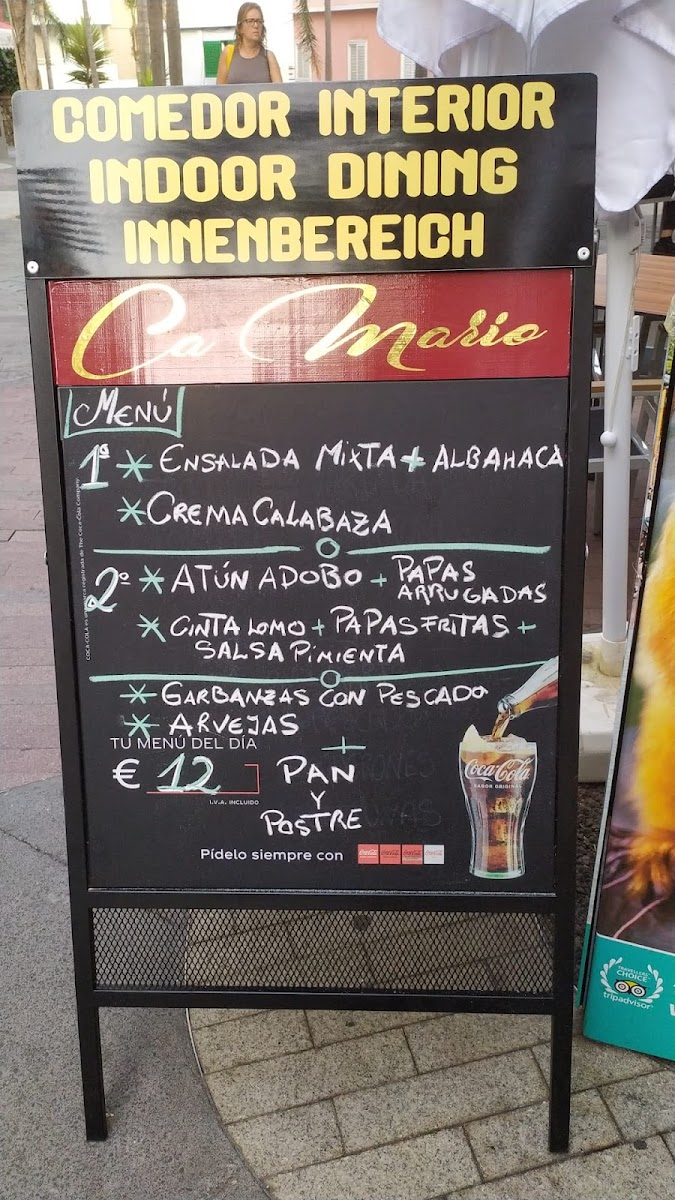 COMEDOR INTERIOR
INDOOR DINING
INNENBEREICH
Ca Mario
MENÚ
1º * ENSALADA MIXTA + ALBAHACA
* CREMA CALABAZA
2º * ATÚN ADOBO + PAPAS
ARRUGADAS
* CINTA LOMO + PAPAS FRITAS +
SALSA PIMIENTA
* GARBANZAS CON PESCADO
* ARVEJAS
TU MENÚ DEL DÍA
+
€ 12 PAN
I.V.A. INCLUIDO
Y
POSTRE
Pídelo siempre con
Coca-Cola
SABOR ORIGINAL
TRAVELLERS'
CHOICE
tripadvisor